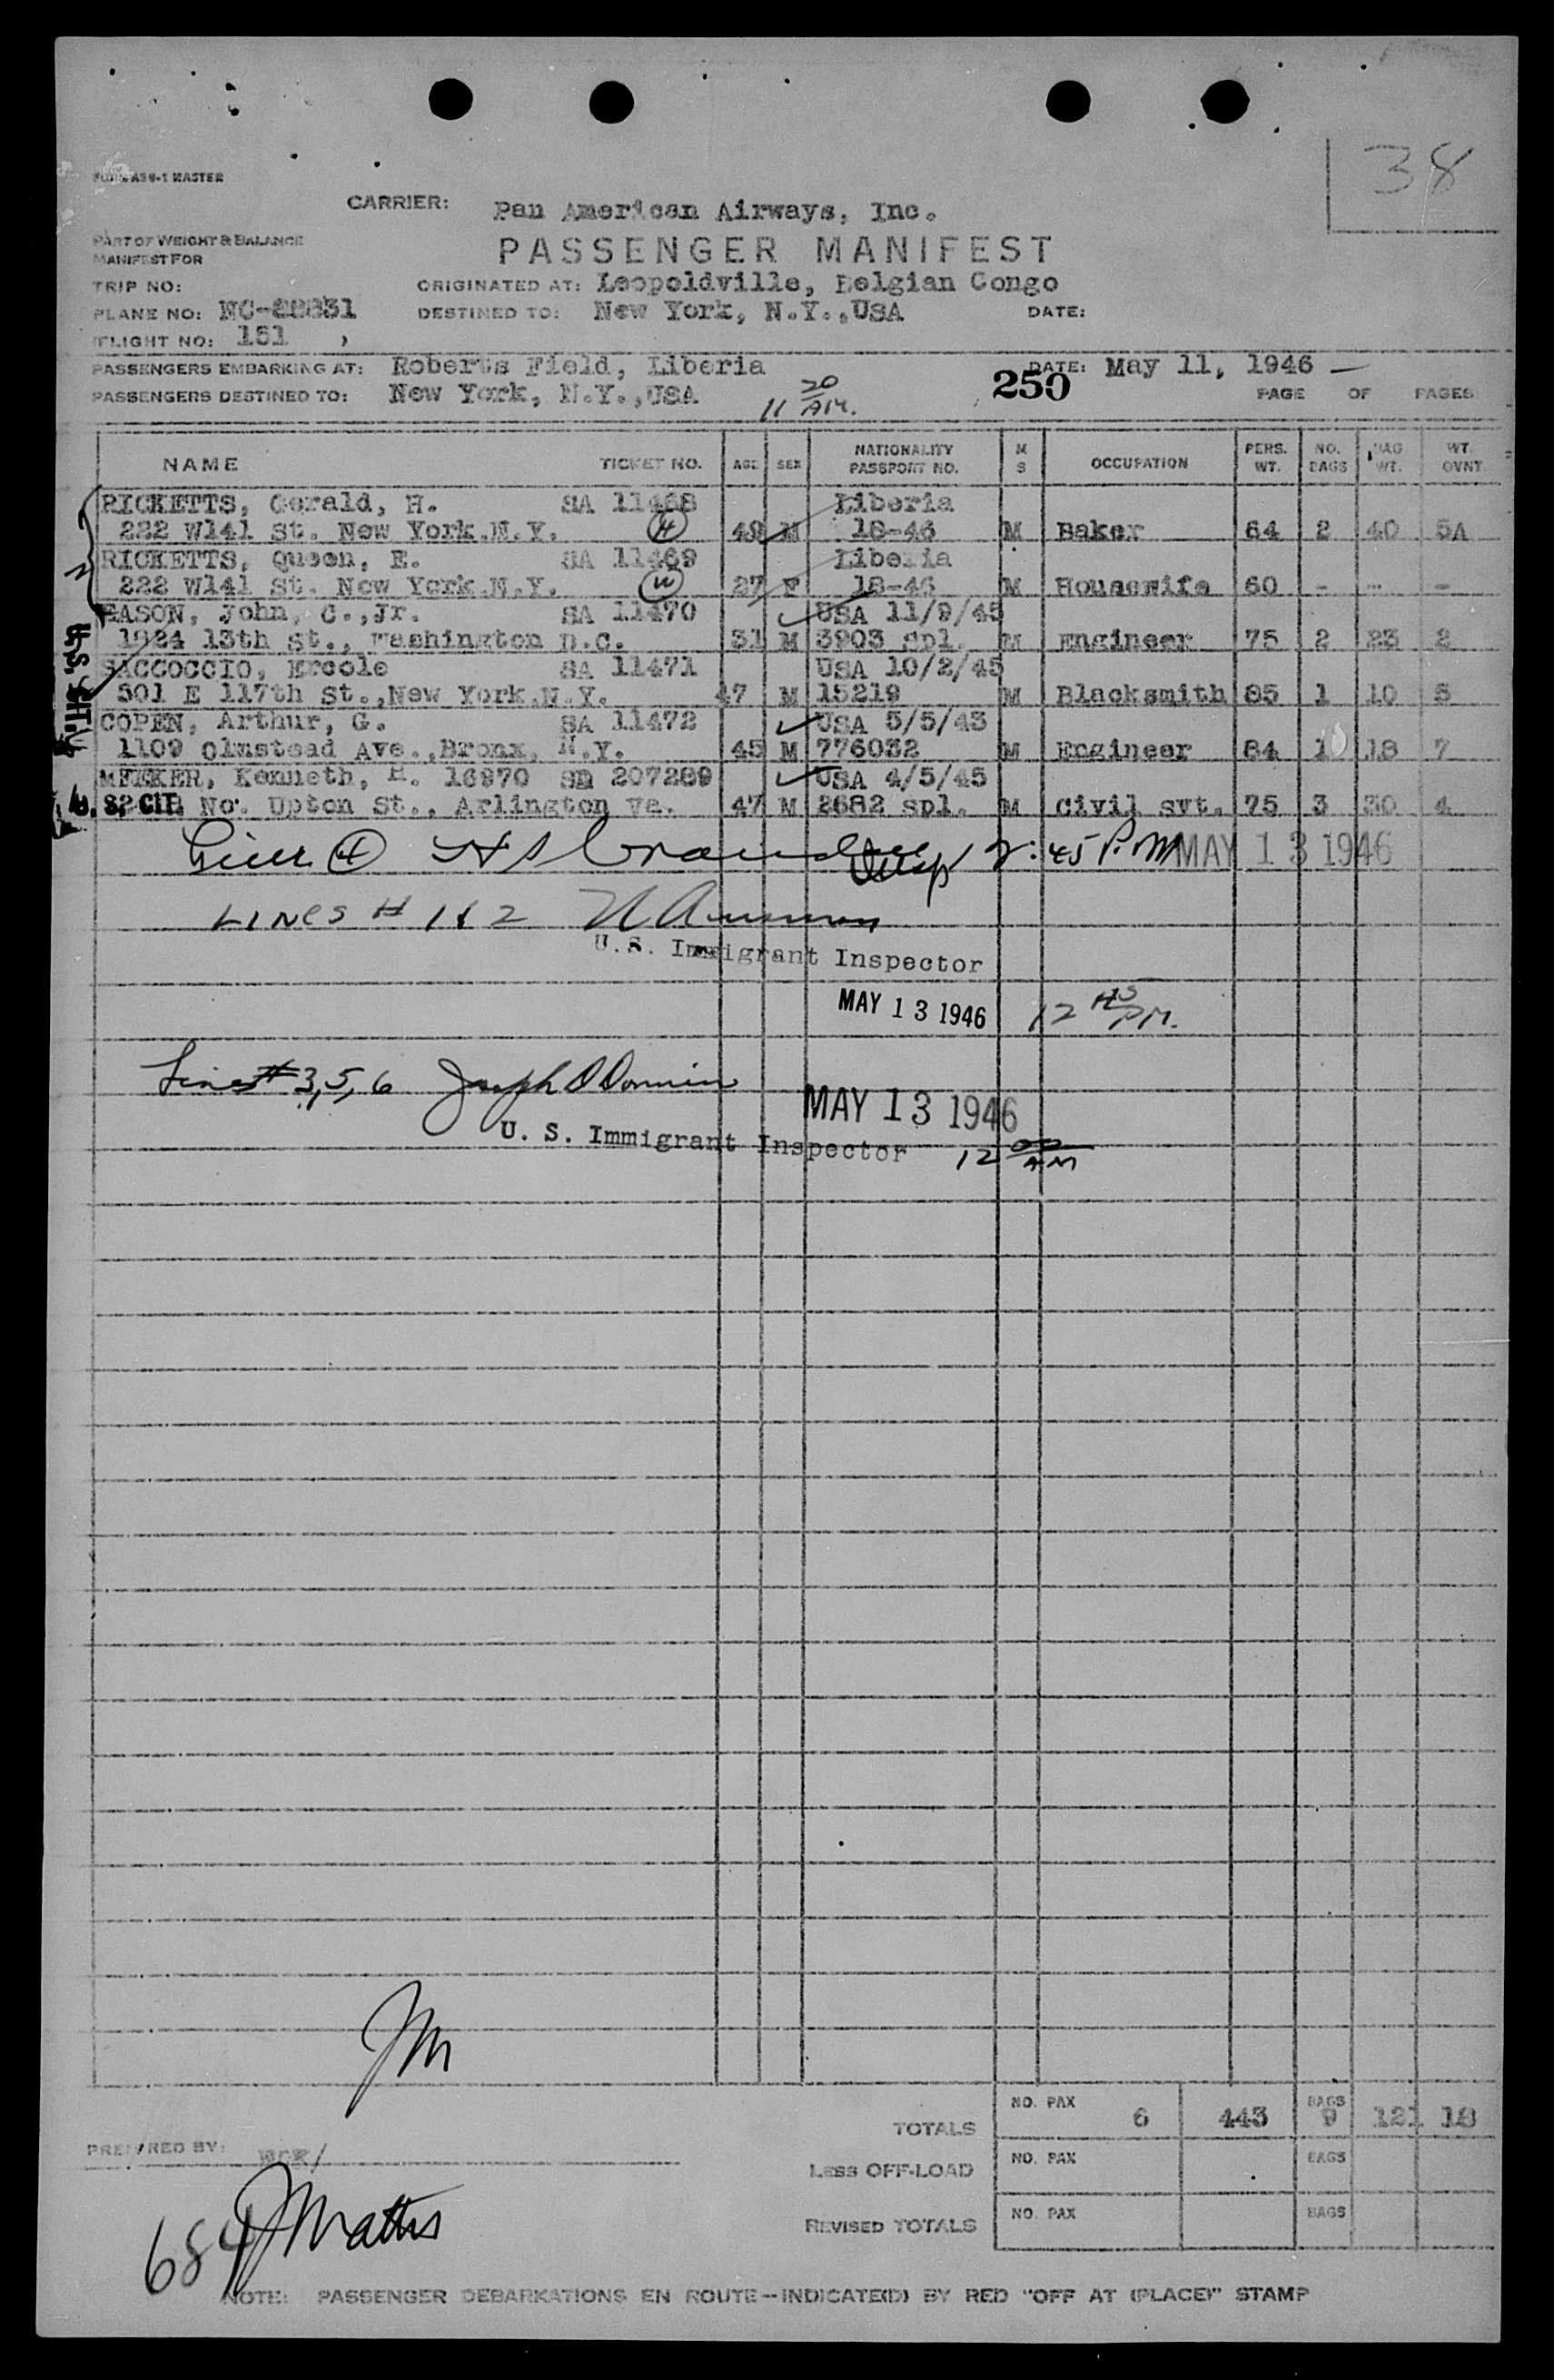 FORM AS8-1 MASTER
38
CARRIER: Pan American Airways, Inc.
PART OF WEIGHT & BALANCE
MANIFEST FOR
PASSENGER MANIFEST
TRIP NO: ORIGINATED AT: Leopoldville, Belgian Congo
PLANE NO: DESTINED TO: New York, N.Y.,USA DATE:
FLIGHT NO: 151
PASSENGERS EMBARKING AT: Roberts Field, Liberia DATE: May 11, 1946
PASSENGERS DESTINED TO: New York, N.Y.,USA 11 20 AM. 250 PAGE OF PAGES
NAME TICKET NO. AGE SEX NATIONALITY PASSPORT NO. M S OCCUPATION PERS. WT. NO. BAGS BAG WT. WT. OVNT
RICKETTS, Gerald, H. SA 11468 Liberia
222 W141 St. New York.N.Y. 4 49 M 18-46 M Baker 64 2 40 5A
RICKETTS, Queen, E. SA 11469 Liberia
222 W141 St. New York.N.Y. 27 F 18-46 M Housewife 60 - - -
EASON, John, C.,Jr. SA 11470 USA 11/9/45
1924 13th St., Washington D.C. 31 M 3903 spl. M Engineer 75 2 23 2
SACCOCCIO, Ercole SA 11471 USA 10/2/45
501 E 117th St.,New York.N.Y. 47 M 15219 M Blacksmith 85 1 10 5
COPEN, Arthur, G. SA 11472 USA 5/5/43
1109 Olmstead Ave.,Bronx, N.Y. 45 M 776032 M Engineer 84 1 18 7
MEEKER, Kenneth, H. 16970 SB 207289 USA 4/5/45
U.S. CIT. No. Upton St., Arlington Va. 47 M 2682 spl. M Civil svt. 75 3 30 4
Line 4 Insp 12:45 P.M MAY 13 1946
LINES # 1 & 2
U.S. Immigrant Inspector
MAY 13 1946 12 45 PM.
Lines # 3, 5, 6 Joseph
MAY 13 1946
U. S. Immigrant Inspector 12 00 AM
JM
TOTALS NO. PAX 6 443 BAGS 9 121 18
PREPARED BY:
Less OFF-LOAD NO. PAX BAGS
REVISED TOTALS NO. PAX BAGS
684 JMattis
NOTE: PASSENGER DEBARKATIONS EN ROUTE—INDICATE(D) BY RED "OFF AT (PLACE)" STAMP